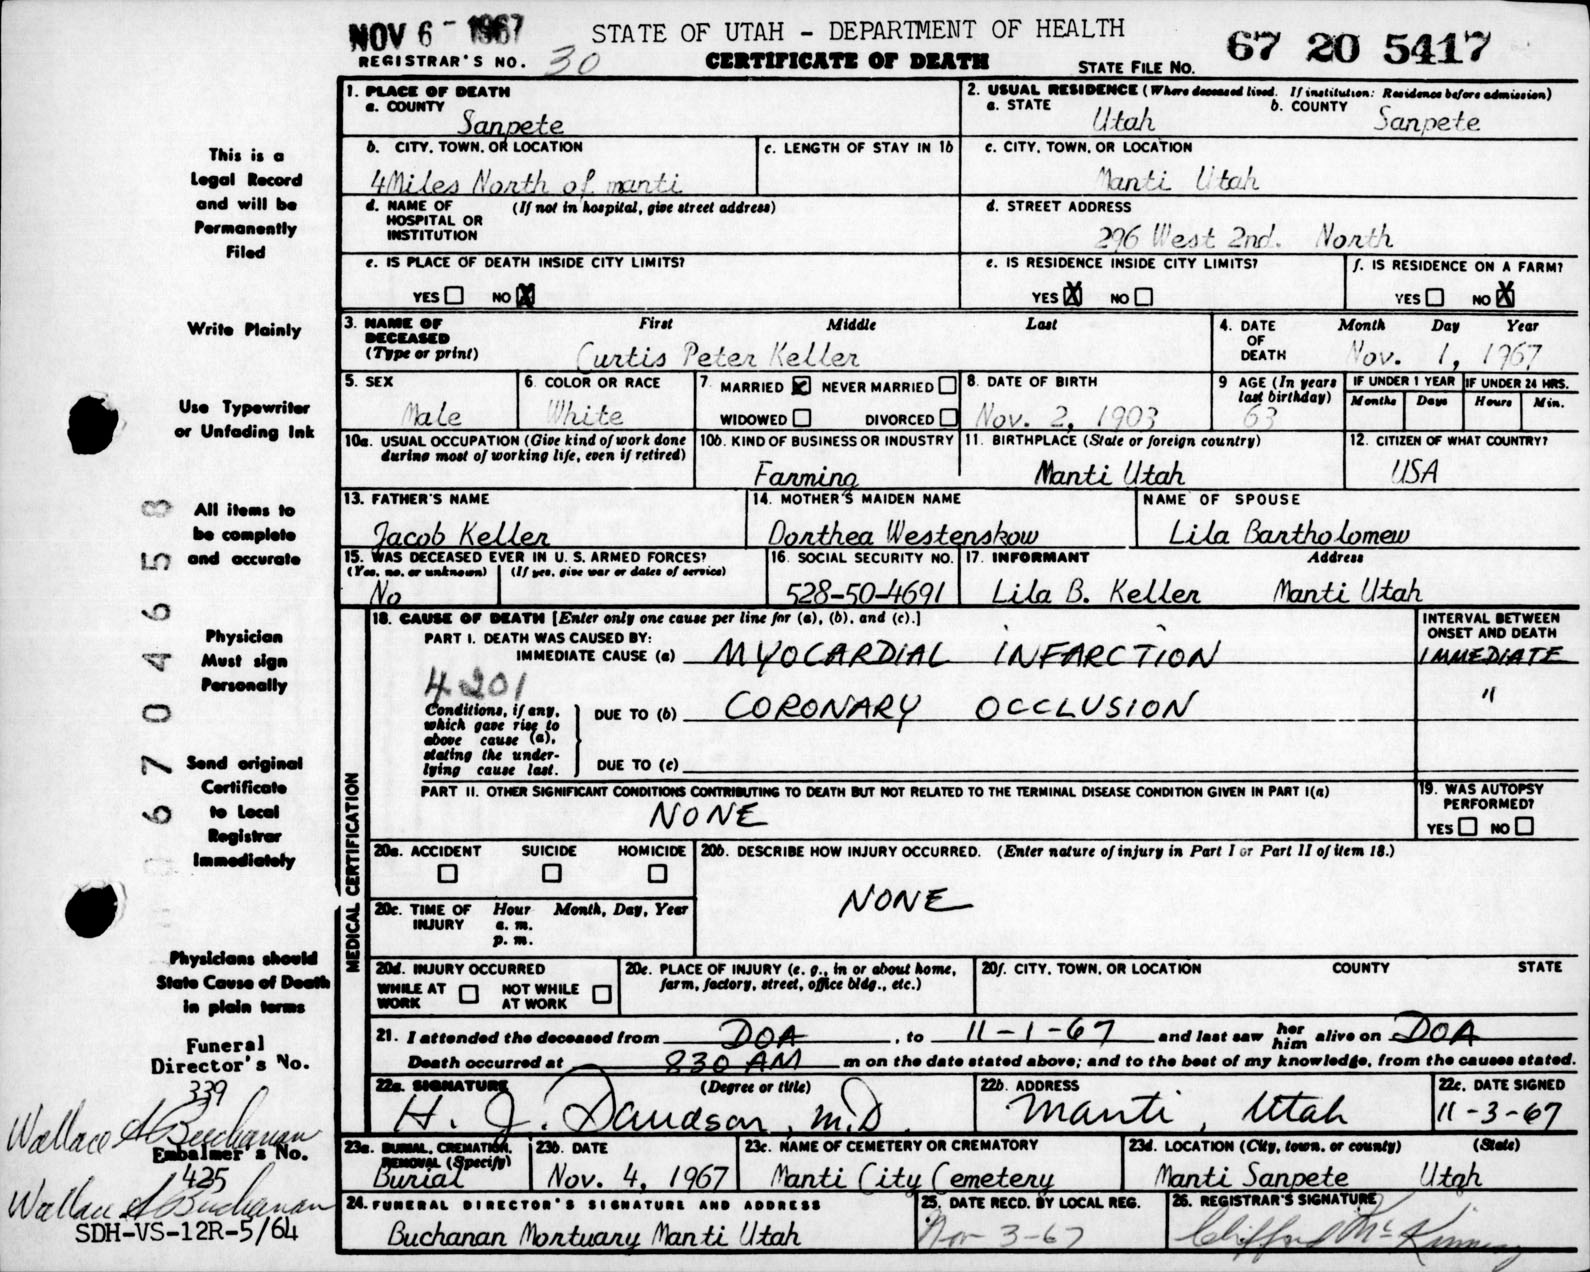 NOV 6 - 1967
STATE OF UTAH - DEPARTMENT OF HEALTH
67 20 5417
REGISTRAR'S NO. 30
CERTIFICATE OF DEATH
STATE FILE NO.
This is a
Legal Record
and will be
Permanently
Filed
Write Plainly
Use Typewriter
or Unfading Ink
All items to
be complete
and accurate
Physician
Must sign
Personally
Send original
Certificate
to Local
Registrar
Immediately
Physicians should
State Cause of Death
in plain terms
Funeral
Director's No.
339
Wallace A Buchanan
Embalmer's No.
425
Wallace A Buchanan
SDH-VS-12R-5/64
067046 58
1. PLACE OF DEATH
a. COUNTY
Sanpete
2. USUAL RESIDENCE (Where deceased lived. If institution: Residence before admission)
a. STATE
Utah
b. COUNTY
Sanpete
b. CITY, TOWN, OR LOCATION
4 Miles North of manti
c. LENGTH OF STAY IN 1b
c. CITY, TOWN, OR LOCATION
Manti Utah
d. NAME OF HOSPITAL OR INSTITUTION (If not in hospital, give street address)
d. STREET ADDRESS
296 West 2nd. North
e. IS PLACE OF DEATH INSIDE CITY LIMITS?
YES NO X
e. IS RESIDENCE INSIDE CITY LIMITS?
YES X NO
f. IS RESIDENCE ON A FARM?
YES NO X
3. NAME OF DECEASED (Type or print)
First Middle Last
Curtis Peter Keller
4. DATE OF DEATH
Month Day Year
Nov. 1, 1967
5. SEX
Male
6. COLOR OR RACE
White
7. MARRIED X NEVER MARRIED
WIDOWED DIVORCED
8. DATE OF BIRTH
Nov. 2, 1903
9 AGE (In years last birthday)
63
IF UNDER 1 YEAR
Months Days
IF UNDER 24 HRS.
Hours Min.
10a. USUAL OCCUPATION (Give kind of work done during most of working life, even if retired)
10b. KIND OF BUSINESS OR INDUSTRY
Farming
11. BIRTHPLACE (State or foreign country)
Manti Utah
12. CITIZEN OF WHAT COUNTRY?
USA
13. FATHER'S NAME
Jacob Keller
14. MOTHER'S MAIDEN NAME
Dorthea Westenskow
NAME OF SPOUSE
Lila Bartholomew
15. WAS DECEASED EVER IN U. S. ARMED FORCES?
(Yes, no, or unknown) (If yes, give war or dates of service)
No
16. SOCIAL SECURITY NO.
528-50-4691
17. INFORMANT Address
Lila B. Keller Manti Utah
MEDICAL CERTIFICATION
18. CAUSE OF DEATH [Enter only one cause per line for (a), (b), and (c).]
INTERVAL BETWEEN ONSET AND DEATH
PART I. DEATH WAS CAUSED BY:
IMMEDIATE CAUSE (a) MYOCARDIAL INFARCTION
IMMEDIATE
4201
Conditions, if any, which gave rise to above cause (a), stating the underlying cause last.
DUE TO (b) CORONARY OCCLUSION
"
DUE TO (c)
PART II. OTHER SIGNIFICANT CONDITIONS CONTRIBUTING TO DEATH BUT NOT RELATED TO THE TERMINAL DISEASE CONDITION GIVEN IN PART I(a)
NONE
19. WAS AUTOPSY PERFORMED?
YES NO
20a. ACCIDENT SUICIDE HOMICIDE
20b. DESCRIBE HOW INJURY OCCURRED. (Enter nature of injury in Part I or Part II of item 18.)
NONE
20c. TIME OF INJURY Hour Month, Day, Year
a. m.
p. m.
20d. INJURY OCCURRED
WHILE AT WORK NOT WHILE AT WORK
20e. PLACE OF INJURY (e. g., in or about home, farm, factory, street, office bldg., etc.)
20f. CITY, TOWN, OR LOCATION COUNTY STATE
21. I attended the deceased from DOA, to 11-1-67 and last saw her him alive on DOA
Death occurred at 830 AM m on the date stated above; and to the best of my knowledge, from the causes stated.
22a. SIGNATURE (Degree or title)
H. J. Davidson, M.D.
22b. ADDRESS
Manti, Utah
22c. DATE SIGNED
11-3-67
23a. BURIAL, CREMATION, REMOVAL (Specify)
Burial
23b. DATE
Nov. 4, 1967
23c. NAME OF CEMETERY OR CREMATORY
Manti City Cemetery
23d. LOCATION (City, town, or county) (State)
Manti Sanpete Utah
24. FUNERAL DIRECTOR'S SIGNATURE AND ADDRESS
Buchanan Mortuary Manti Utah
25. DATE RECD. BY LOCAL REG.
Nov 3-67
26. REGISTRAR'S SIGNATURE
Clifford McKinney